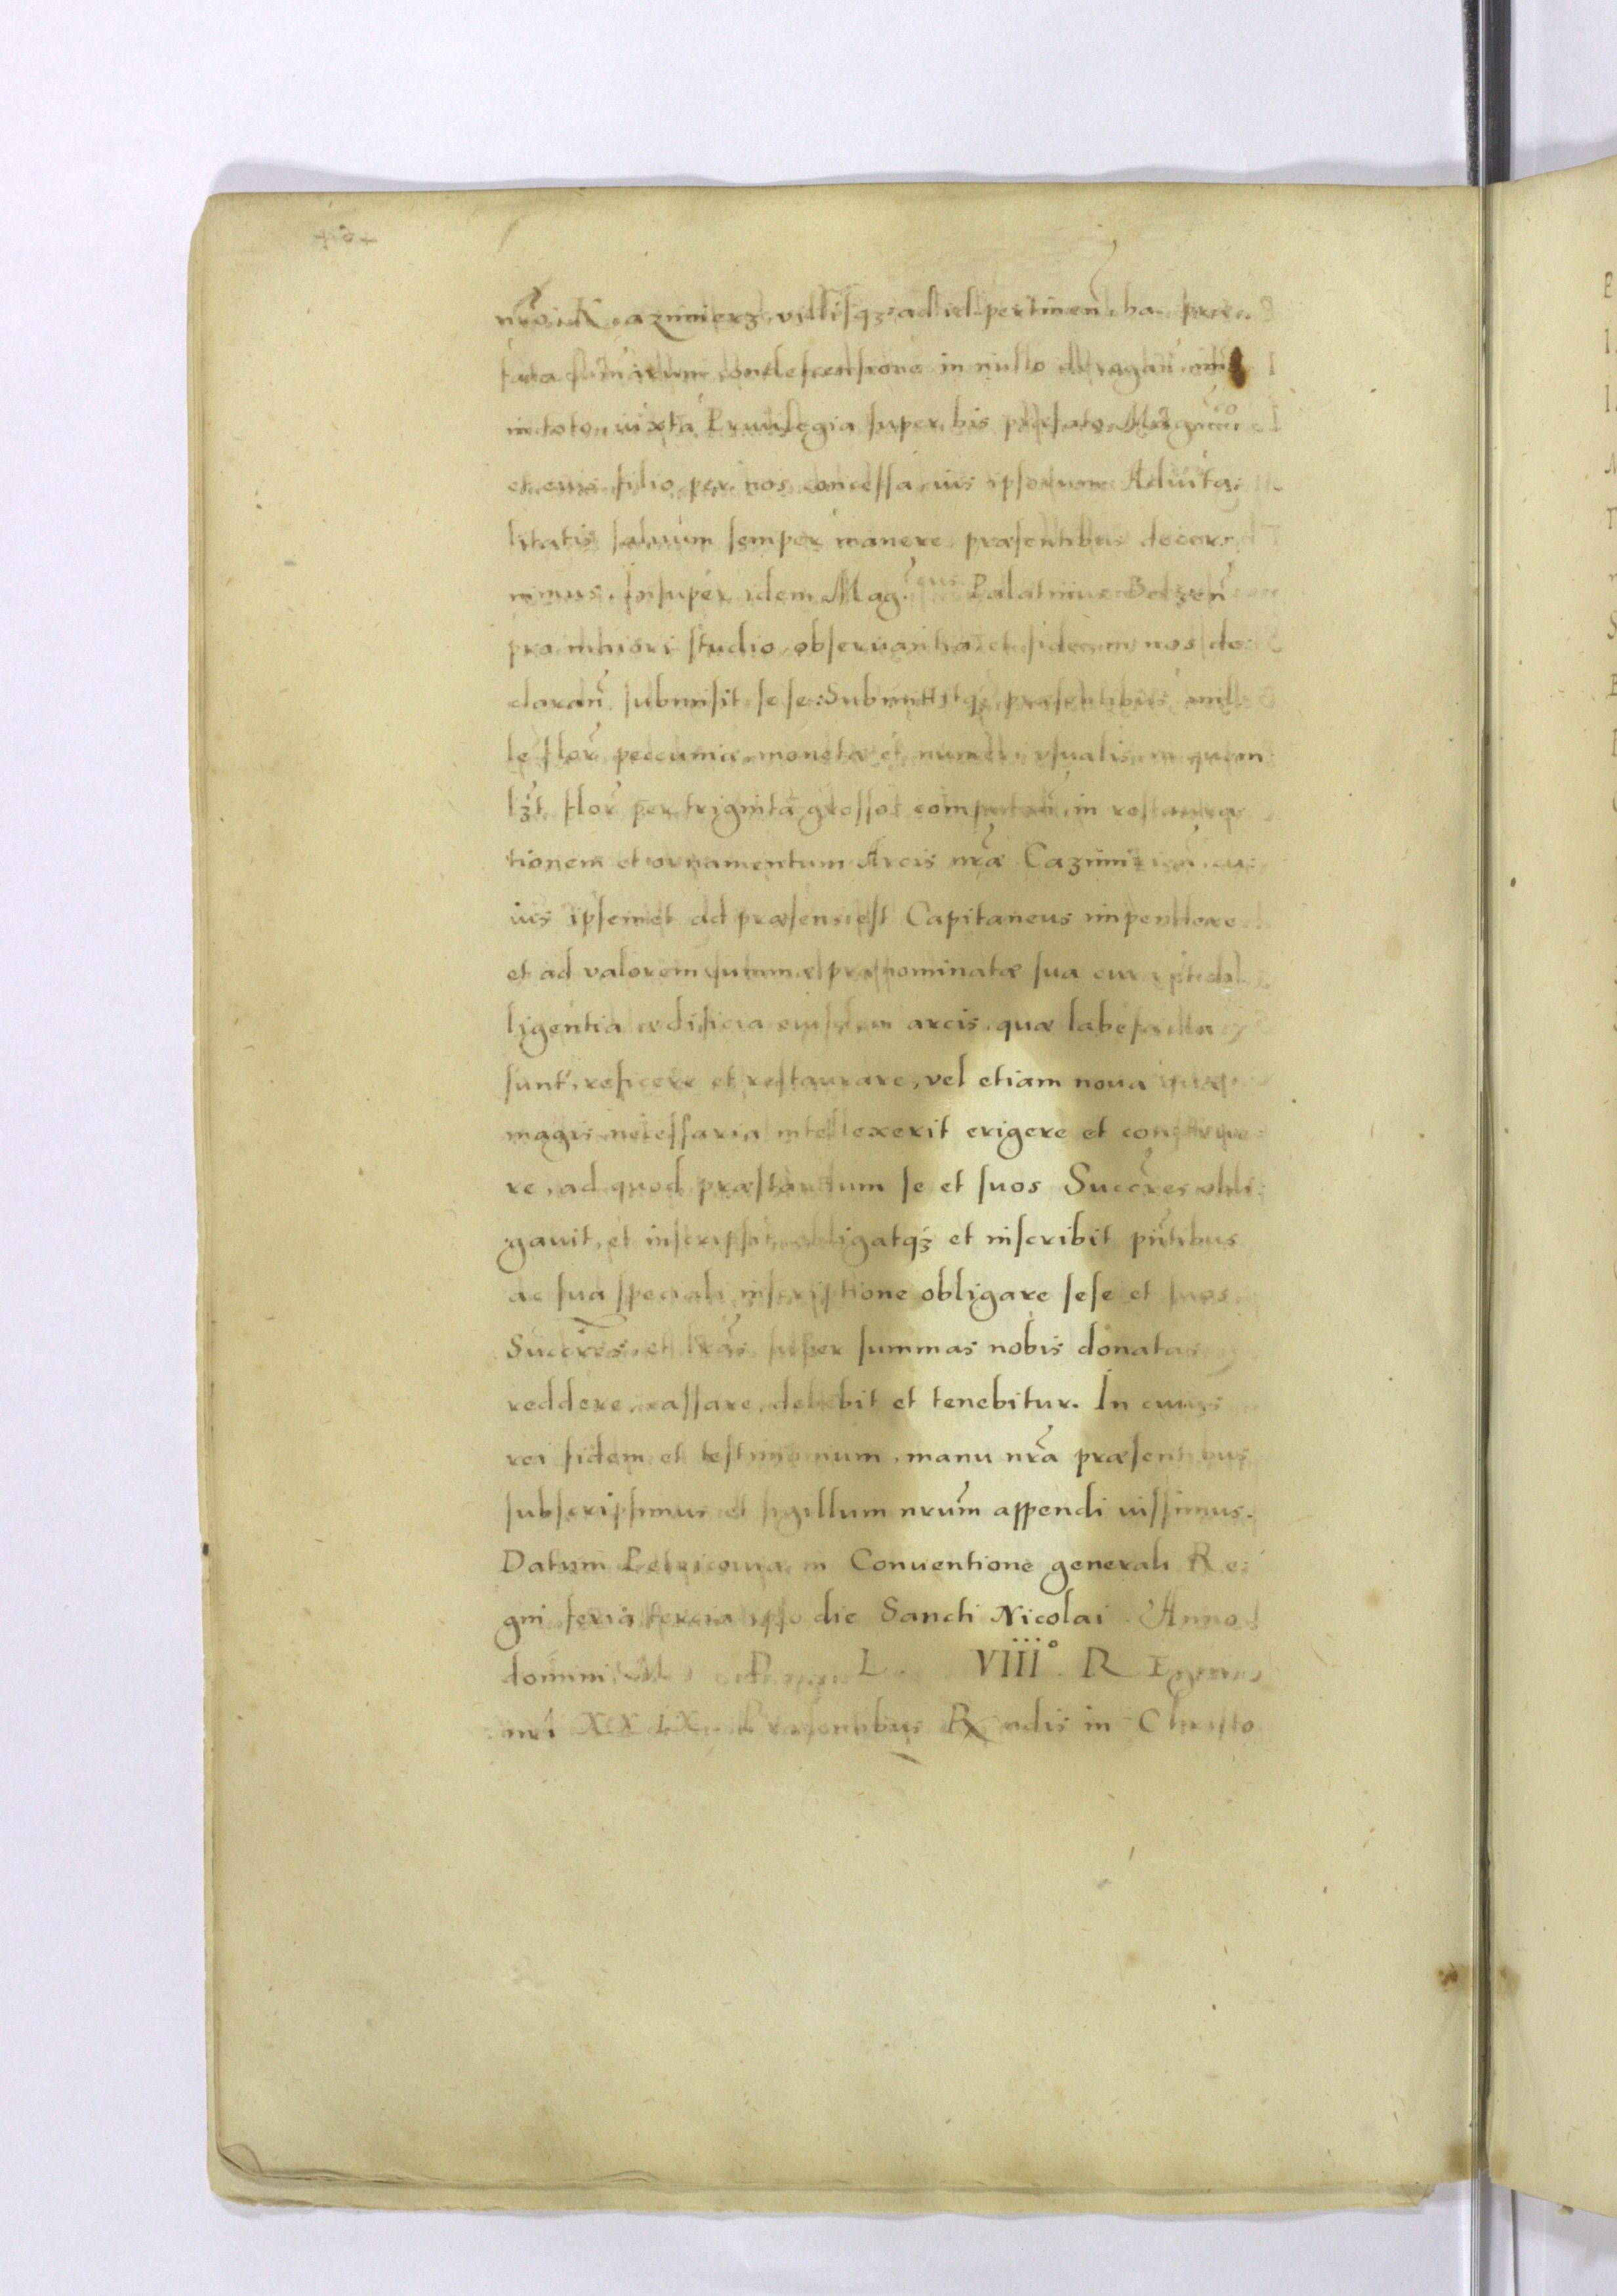 nr̃o Kazimierz, villisqz ad id pertineñ. ha prae-
fata sum̃arum condescensione in nullo derogañ. imo
in toto iuxta Priuilegia super his praefato Mag̃co
et eius filio per nos concessa ius ipsorum Aduita:
litatis saluum semper manere praesentibus decer:
nimus. Insuper idem Mag.cus Palatinus Belzeñ
pro
studio obseruantia et fide in nos de:
clarañ submisit sese: Submittitqz praesentibus mil:
le flor̃ peccuniae monetae et numeri vsualis in quem
lz̃t flor̃ per triginta grossos computañ in restaura
tionem et ornamentum Arcis nr̃ae Cazimirieñ. cu:
ius ipsemet ad praesens est Capitaneus impendere
et ad valorem summae praenominatae sua cura et di
ligentia aedificia eiusdem arcis quae labefacta
sunt, reficere et restaurare, vel etiam noua quae
magis necessaria intellexerit erigere et construe:
re, ad quod praestandum se et suos Succr̃es obli:
gauit, et inscripsit, obligatqz et inscribit pñtibus
ac sua speciali inscriptione obligare sese et suos
Succr̃es, et lr̃as super summas nobis donatas
reddere, cassare, debebit et tenebitur. In cuius
rei fidem et testimonium, manu nr̃a praesentibus
subscripsimus et sigillum nrum̃ appendi iussimus.
Datum Petricouiae in Conuentione generali Re:
gni feria tercia ipso die Sancti Nicolai. Anno
domini M D L VIII°. Regni
nri XXIX. Praesentibus Rndis in Christo